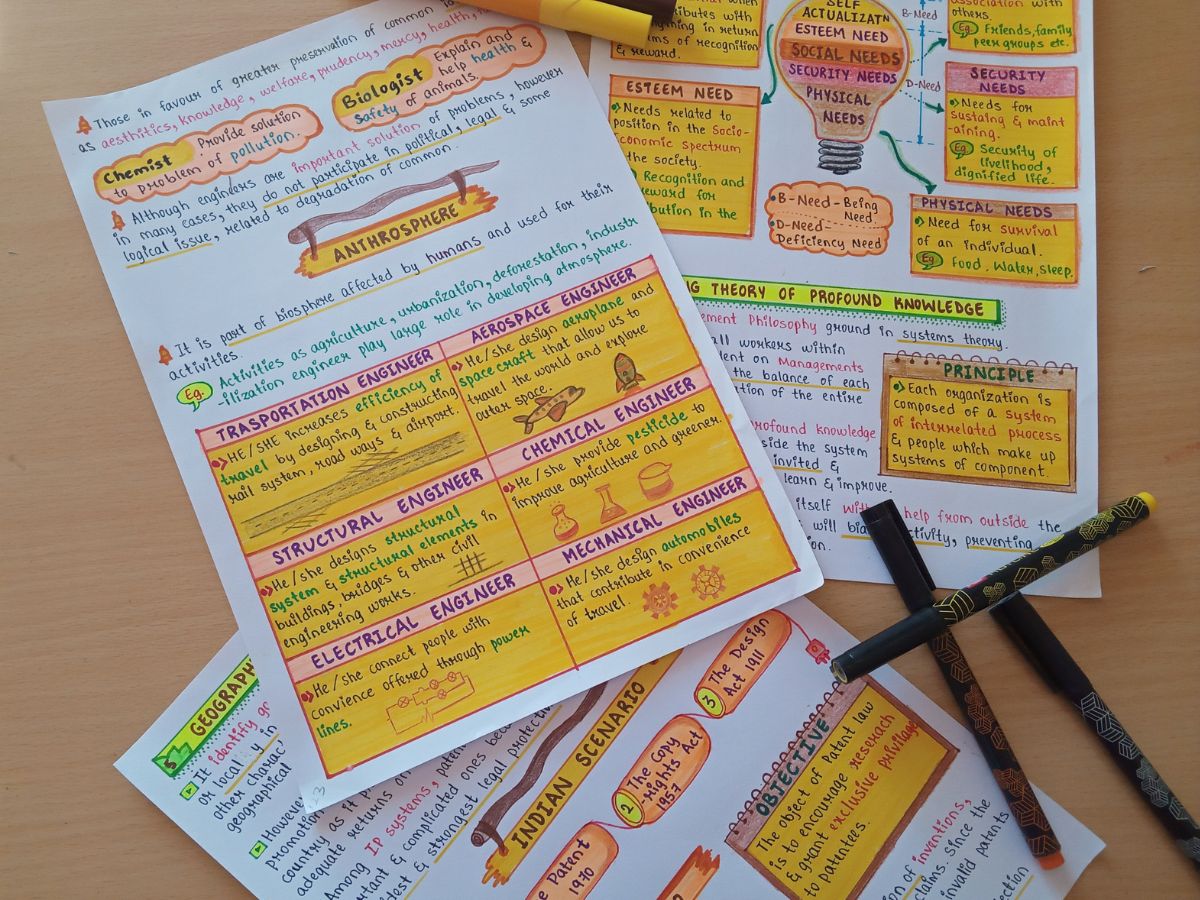 Those in favour of greater preservation of common
as aesthitics, knowledge, welfare, prudency, mercy, health,
Chemist Provide solution
to problem of pollution.
Biologist Explain and
help health &
safety of animals.
Although engineers are important solution of problems, however
in many cases, they do not participate in political, legal & some
logical issue, related to degradation of common.
ANTHROSPHERE
It is part of biosphere affected by humans and used for their
activities.
Eg. Activities as agriculture, urbanization, deforestation, industr
-ilization engineer play large role in developing atmosphere.
TRASPORTATION ENGINEER
He/SHE increases efficiency of
travel by designing & constructing
rail system, road ways & airport.
AEROSPACE ENGINEER
He/she design aeroplane and
space craft that allow us to
travel the world and explore
outer space.
STRUCTURAL ENGINEER
He/she designs structural
system & structural elements in
buildings, bridges & other civil
engineering works.
CHEMICAL ENGINEER
He/she provide pesticide to
improve agriculture and greener.
ELECTRICAL ENGINEER
He/she connect people with
convience offered through power
lines.
MECHANICAL ENGINEER
He/she design automobiles
that contribute in convenience
of travel.
with
in return
of recognition
& reward.
ESTEEM NEED
Needs related to
position in the Socio-
economic spectrum
the society.
Recognition and
reward for
in the
SELF
ACTUALIZATN
ESTEEM NEED
SOCIAL NEEDS
SECURITY NEEDS
PHYSICAL
NEEDS
B-Need
D-Need
B-Need-Being
Need
D-Need-
Deficiency Need
association with
others.
Eg. Friends, family,
peer groups etc.
SECURITY
NEEDS
Needs for
sustaing & maint
-aining.
Eg. Security of
livelihood,
dignified life.
PHYSICAL NEEDS
Need for survival
of an individual.
Eg. Food. Water, sleep.
THEORY OF PROFOUND KNOWLEDGE
Philosophy ground in systems theory.
all workers within
on Managements
the balance of each
of the entire
PRINCIPLE
Each organization is
composed of a system
of interrelated process
& people which make up
systems of component.
profound knowledge
the system
invited &
learn & improve.
itself with help from outside the
will preventing
5 GEOGRAPH
It identify
or local
other
geographical
However
promotion
country as it
adequate returns
Among IP systems,
& complicated ones
& strongest legal
INDIAN SCENARIO
Patent
1970
2 The Copy
-rights Act
1957
3 The Design
Act 1911
OBJECTIVE
The object of Patent law
is to encourage reserach
& grant exclusive privilage
to patentees.
of invention,
claims. Since the
invalid patents